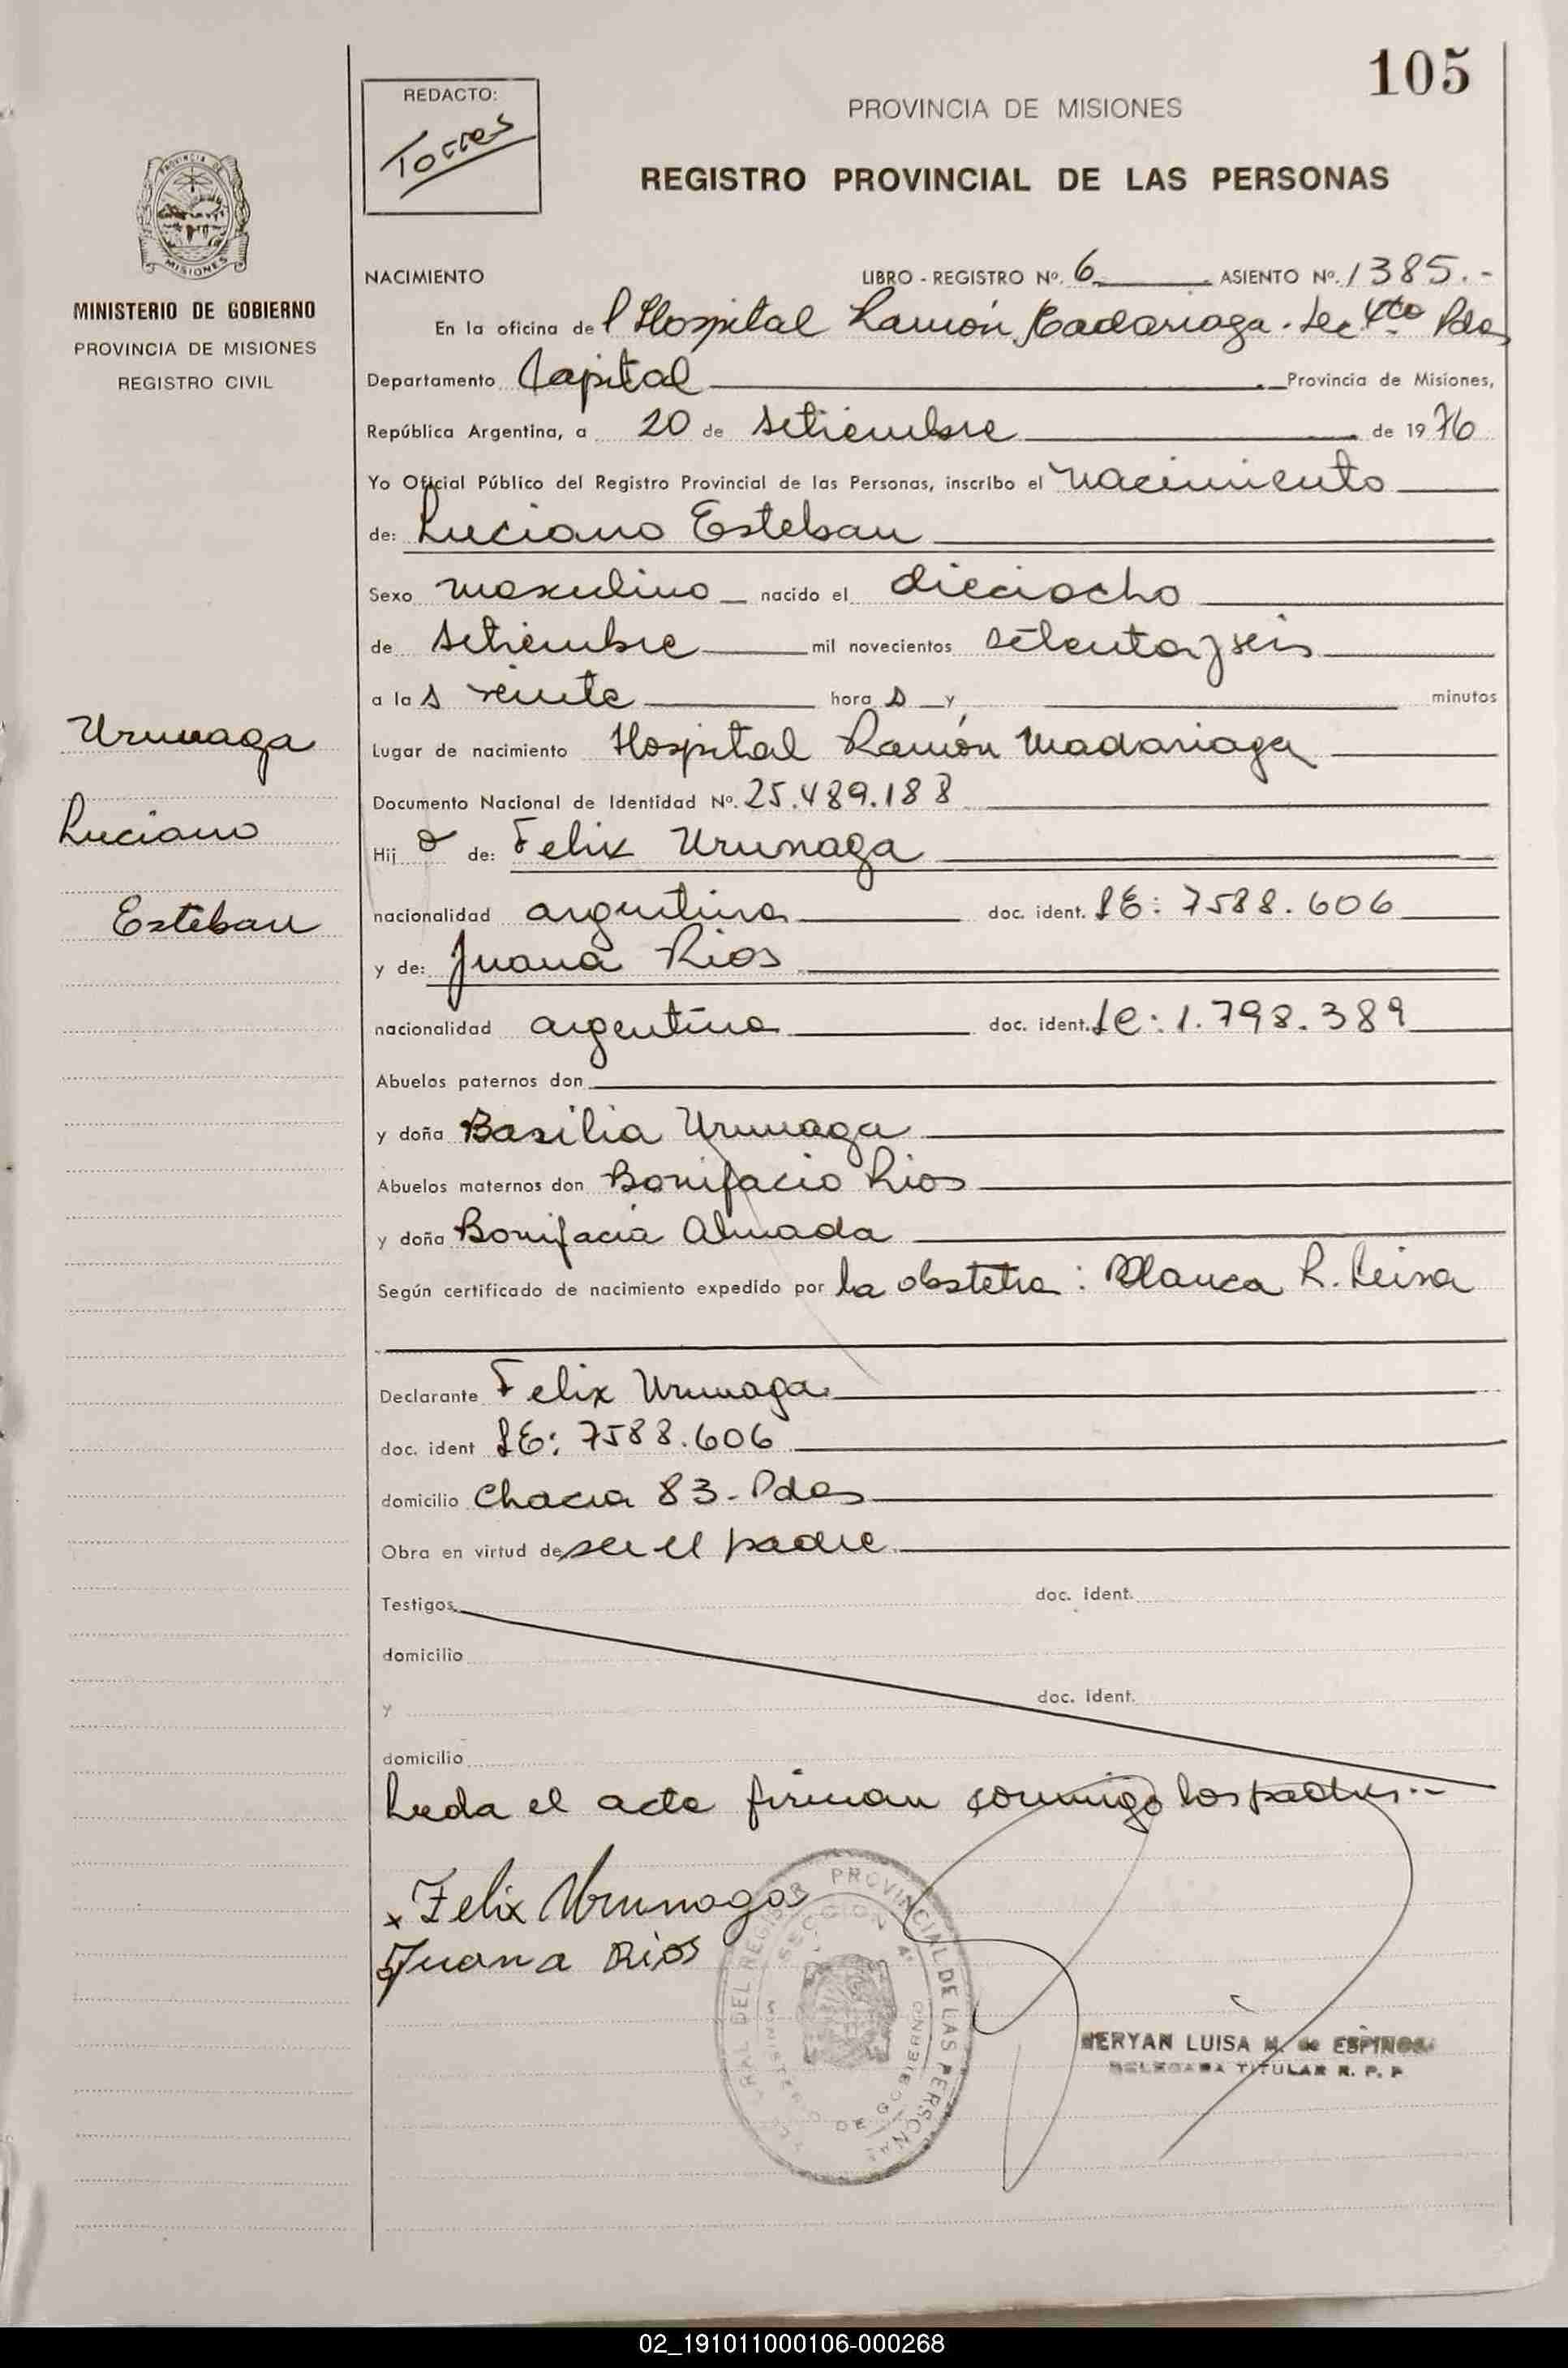 105
REDACTO:
Torres
PROVINCIA DE MISIONES
REGISTRO PROVINCIAL DE LAS PERSONAS
PROVINCIA DE
MISIONES
MINISTERIO DE GOBIERNO
PROVINCIA DE MISIONES
REGISTRO CIVIL
NACIMIENTO LIBRO - REGISTRO Nº. 6 ASIENTO Nº. 1385.-
En la oficina del Hospital Ramón Madariaga. Sec 4ta Pdas
Departamento Capital Provincia de Misiones,
República Argentina, a 20 de setiembre de 1976
Yo Oficial Público del Registro Provincial de las Personas, inscribo el nacimiento
de: Luciano Esteban
Sexo masculino nacido el dieciocho
de setiembre mil novecientos setenta y seis
a las veinte horas y minutos
Urunaga
Luciano
Esteban
Lugar de nacimiento Hospital Ramón Madariaga
Documento Nacional de Identidad Nº. 25.489.188
Hijo de: Felix Urunaga
nacionalidad argentina doc. ident. LE: 7588.606
y de: Juana Rios
nacionalidad argentina doc. ident. LC: 1.798.389
Abuelos paternos don
y doña Basilia Urunaga
Abuelos maternos don Bonifacio Rios
y doña Bonifacia Almada
Según certificado de nacimiento expedido por la obstetra: Blanca R. Leiva
Declarante Felix Urunaga
doc. ident LE: 7588.606
domicilio Chacra 83 - Pdas
Obra en virtud de ser el padre
Testigos doc. ident.
domicilio
y doc. ident.
domicilio
Leda el acta firman conmigo los padres.--
x Felix Urunaga
Juana Rios
REGISTRO PROVINCIAL DE LAS PERSONAS
SECCION 4ª
MINISTERIO DE GOBIERNO
NERYAN LUISA M. de ESPINOSA
DELEGADA TITULAR R. P. P
02_191011000106-000268